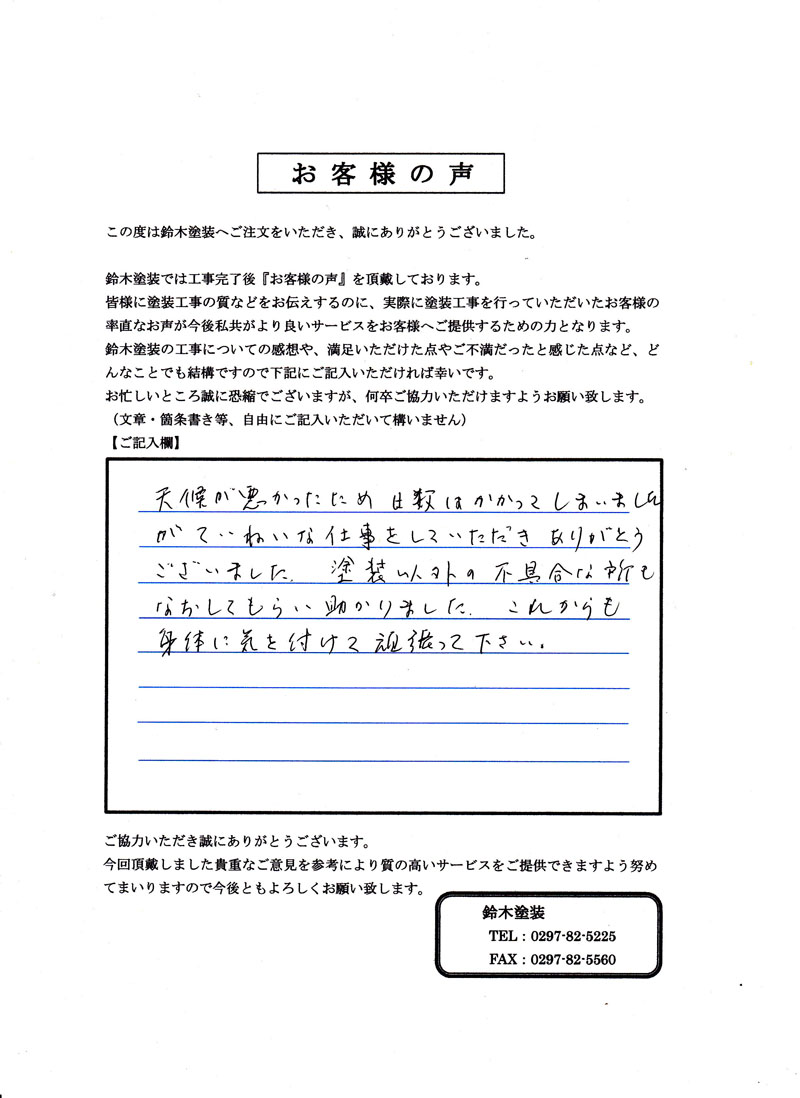 お客様の声
この度は鈴木塗装へご注文をいただき、誠にありがとうございました。
鈴木塗装では工事完了後『お客様の声』を頂戴しております。
皆様に塗装工事の質などをお伝えするのに、実際に塗装工事を行っていただいたお客様の
率直なお声が今後私共がより良いサービスをお客様へご提供するための力となります。
鈴木塗装の工事についての感想や、満足いただけた点やご不満だったと感じた点など、ど
んなことでも結構ですので下記にご記入いただければ幸いです。
お忙しいところ誠に恐縮でございますが、何卒ご協力いただけますようお願い致します。
（文章・箇条書き等、自由にご記入いただいて構いません）
【ご記入欄】
天候が悪かったため日数はかかってしまいました
がていねいな仕事をしていただきありがとう
ございました。塗装以外の不具合な所も
なおしてもらい助かりました。これからも
身体に気を付けて頑張って下さい。
ご協力いただき誠にありがとうございます。
今回頂戴しました貴重なご意見を参考により質の高いサービスをご提供できますよう努め
てまいりますので今後ともよろしくお願い致します。
鈴木塗装
TEL：0297-82-5225
FAX：0297-82-5560